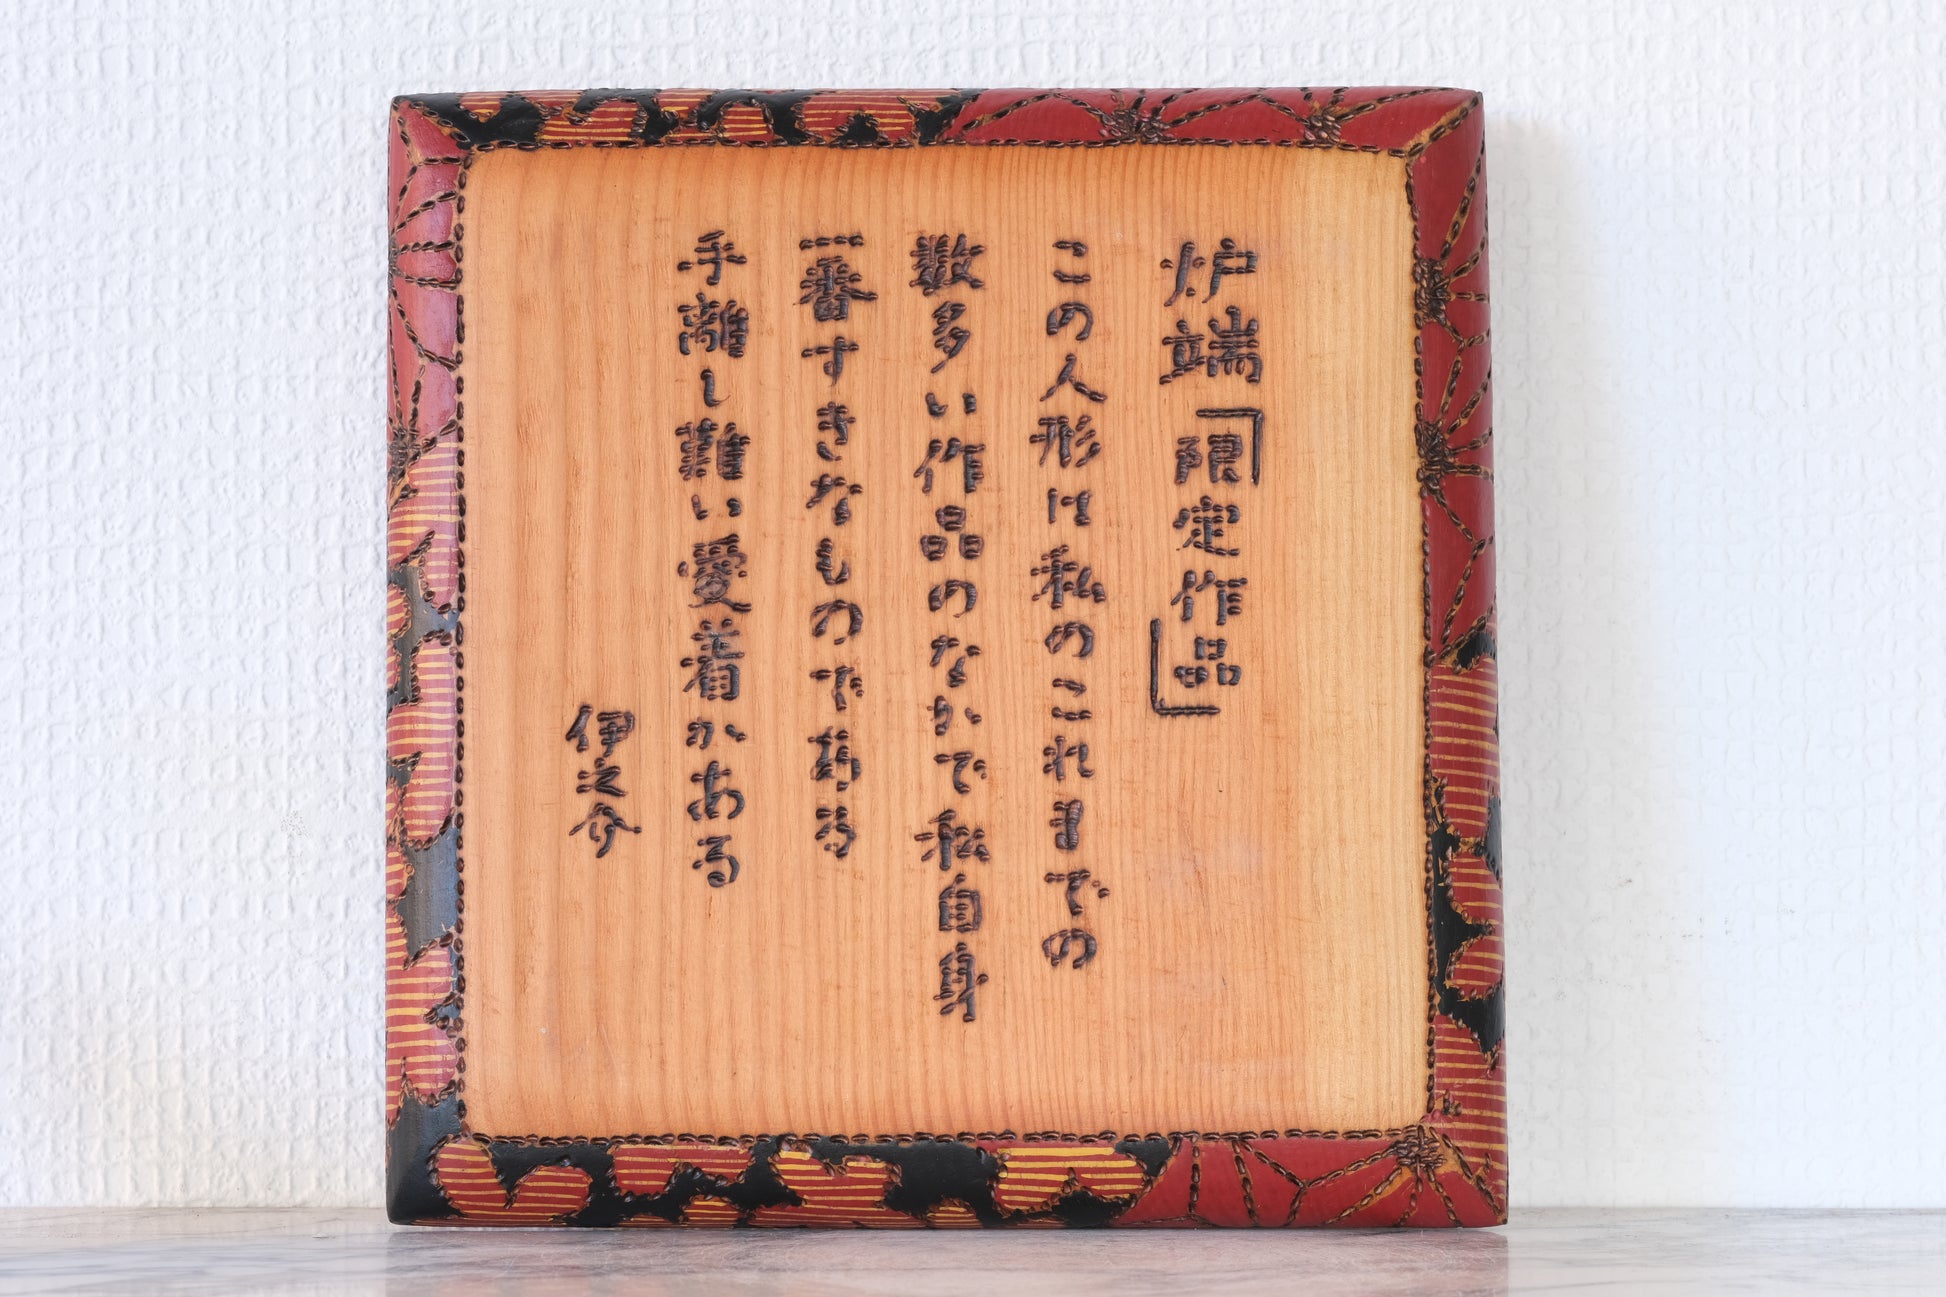 炉端「限定作品」
この人形は私のこれまでの
数多い作品のなかで私自身
一番すきなものである
手離し難い愛着がある
伊之介